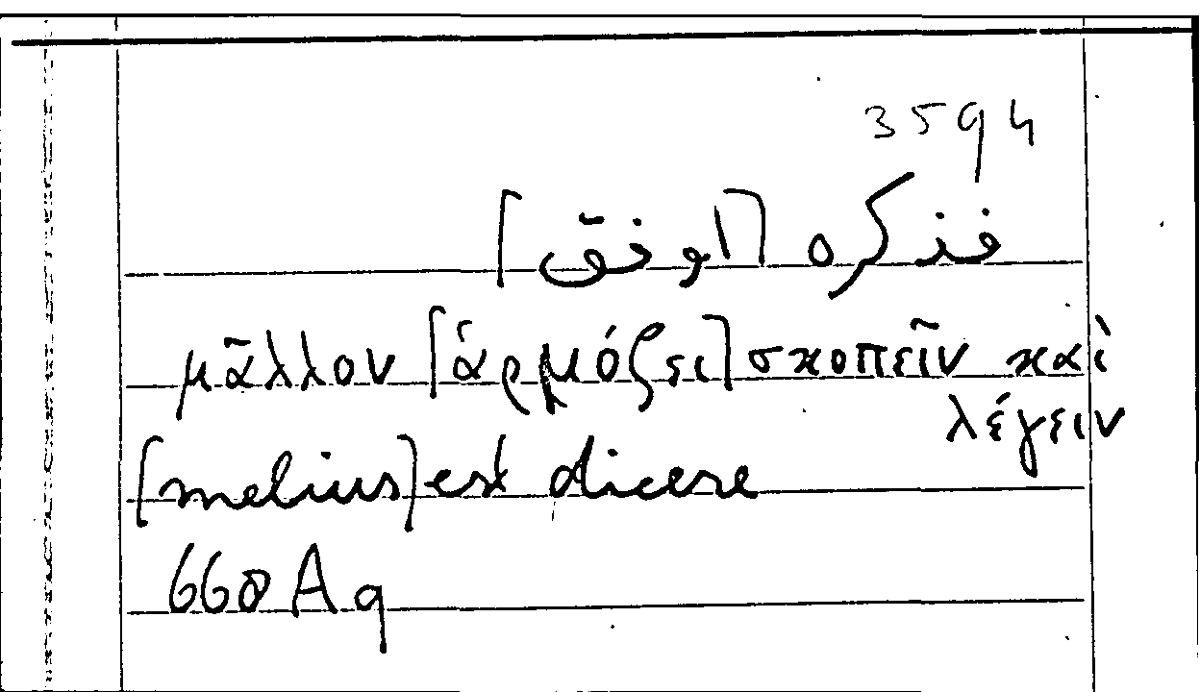 3594
فذكره [اوفق]
μᾶλλον [ἁρμόζει] σκοπεῖν καὶ
λέγειν
[melius] est dicere
660 Aq